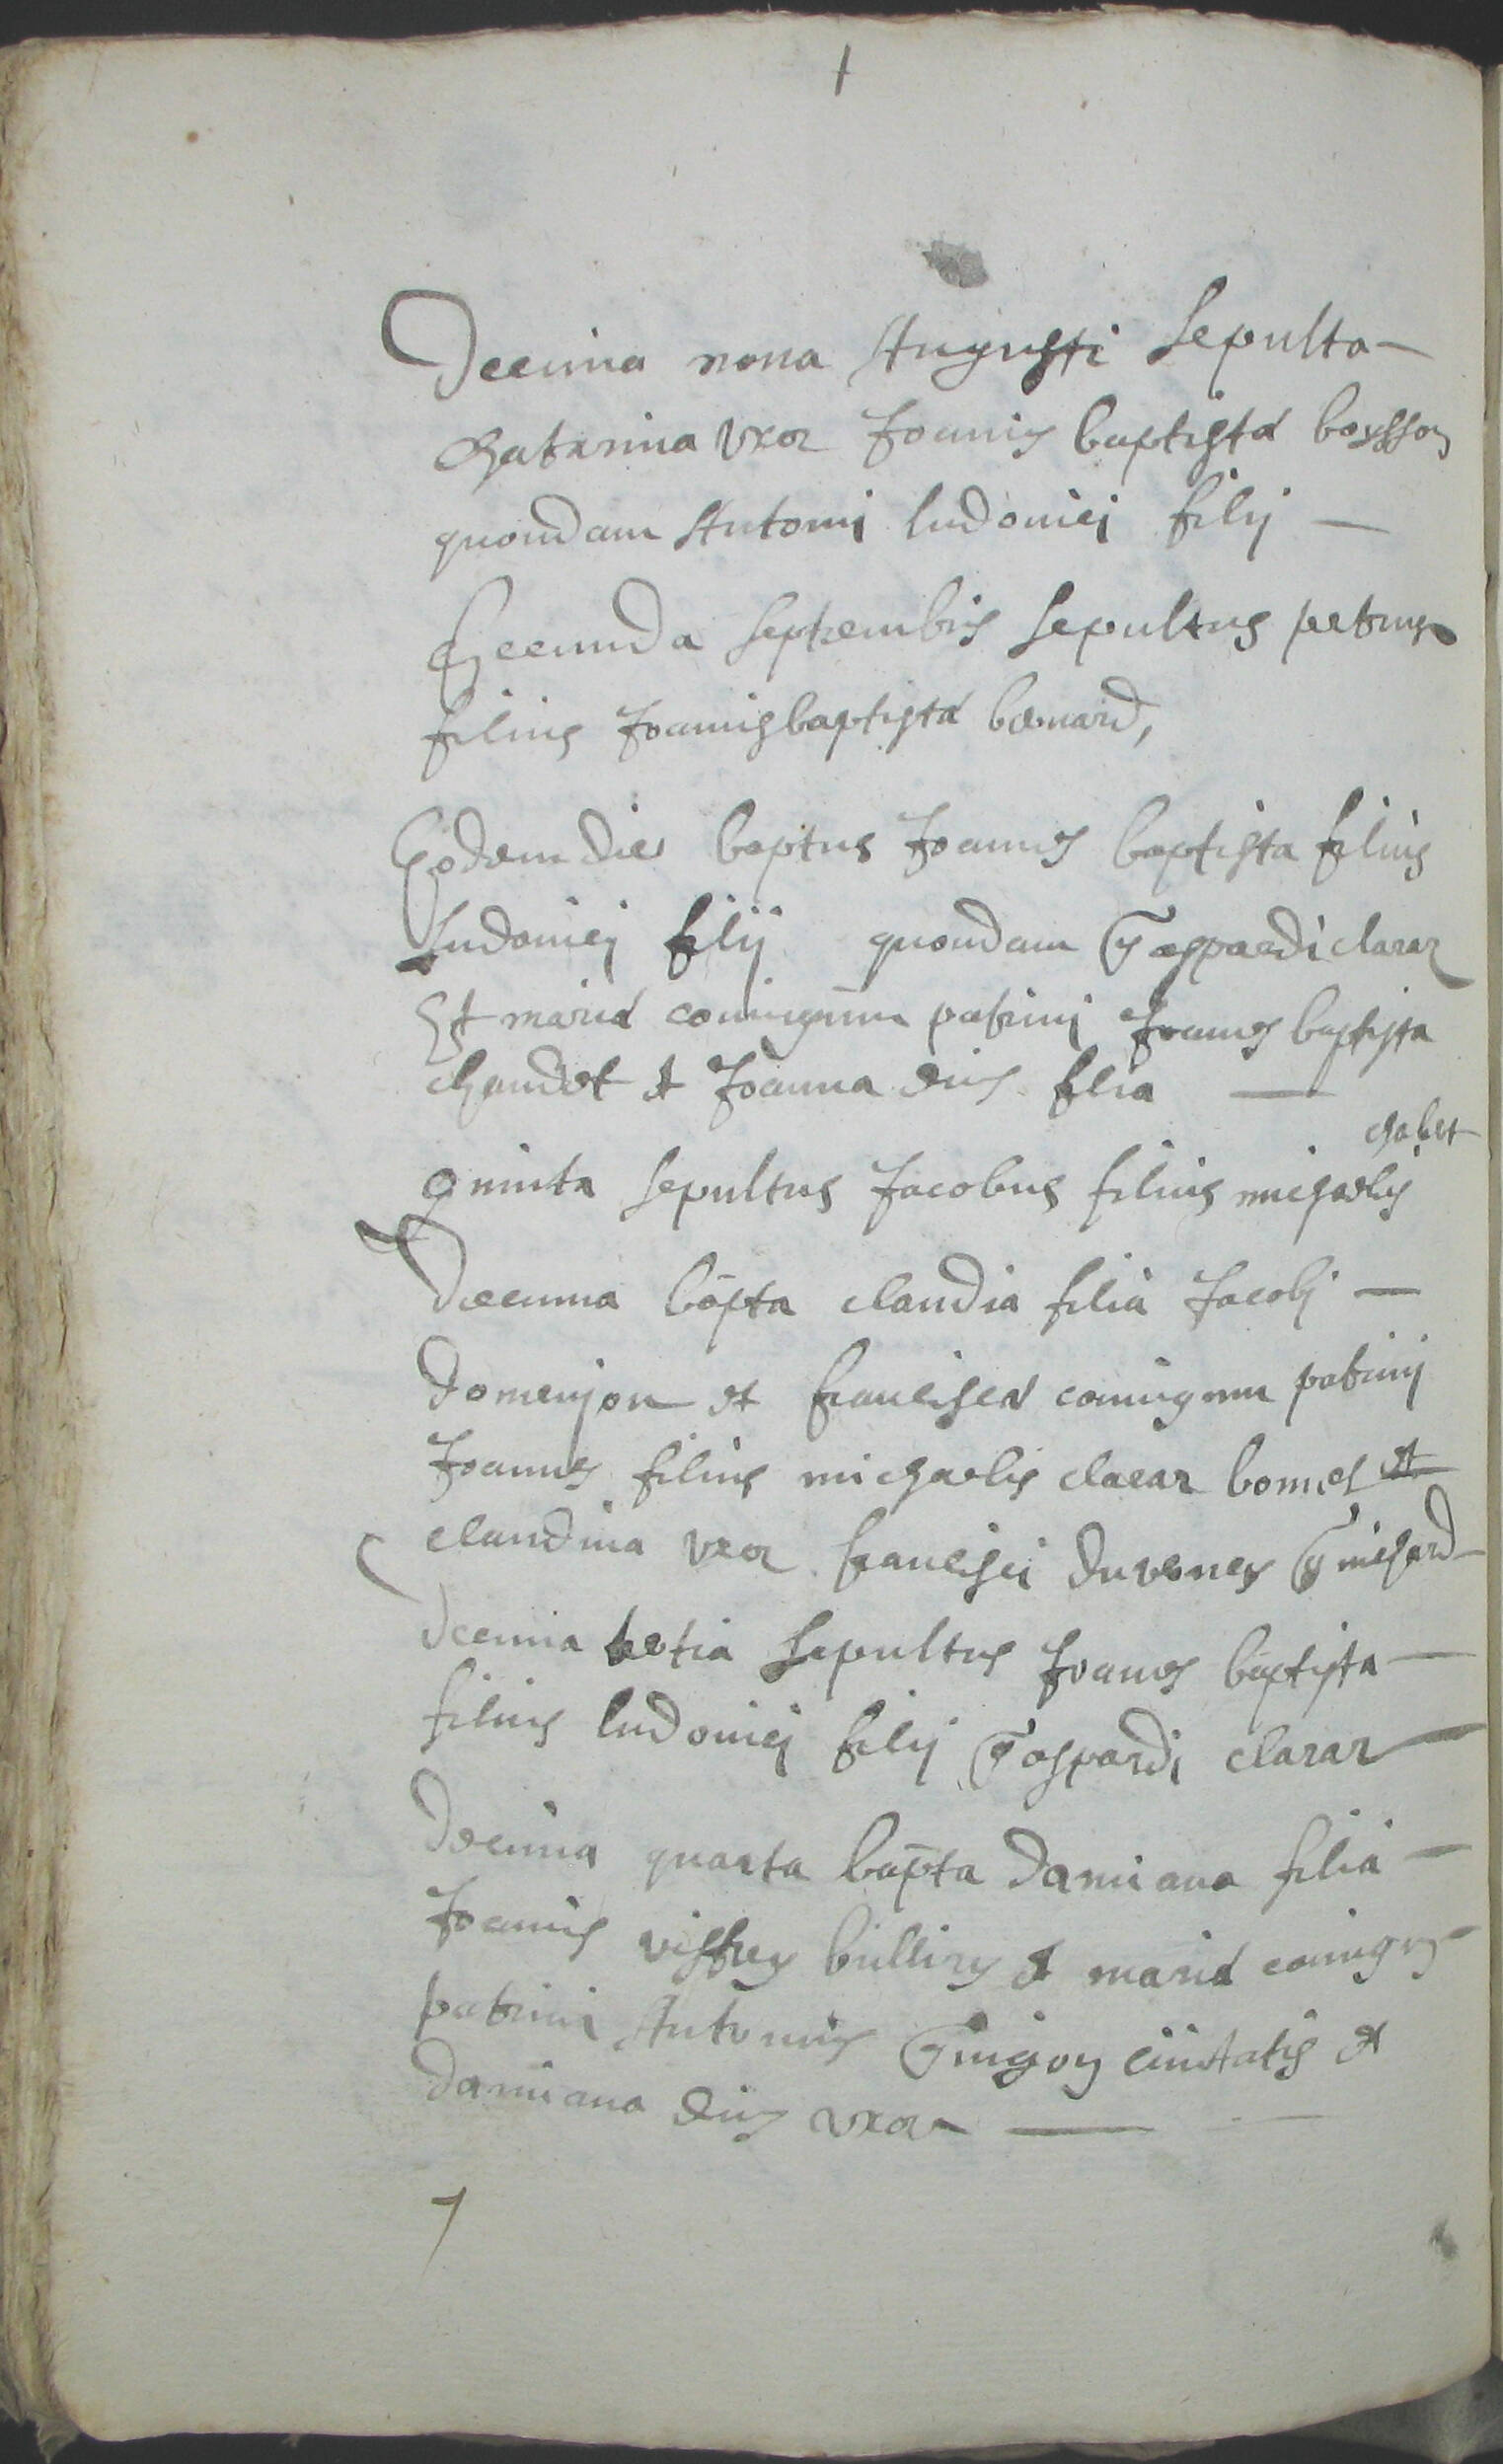 Decima nona Augusti sepulta
Catarina uxor Joannis baptistæ boysson
quondam Antonij ludovici filij
Secunda septembris sepultus petrus
filius Joannis baptistæ bernard,
Eodem die baptus Joannes baptista filius
ludovici filij quondam Gaspardi claraz
Et mariæ coniugum patrini Joannes baptista
chaudet et Joanna eius filia
chabet
quinta sepultus Jacobus filius michaelis
Decima bapta claudia filia Jacobi
domenjon et franciscæ coniugum patrini
Joannes filius michaelis claraz et
claudina uxor francisci duverney Guichard
decima tertia sepultus Joannes baptista
filius ludovici filij Gaspardi claraz
Decima quarta bapta damiana filia
Joannis et mariæ coniugum
patrini Antonius Guigon civitatis et
damiana eius uxor